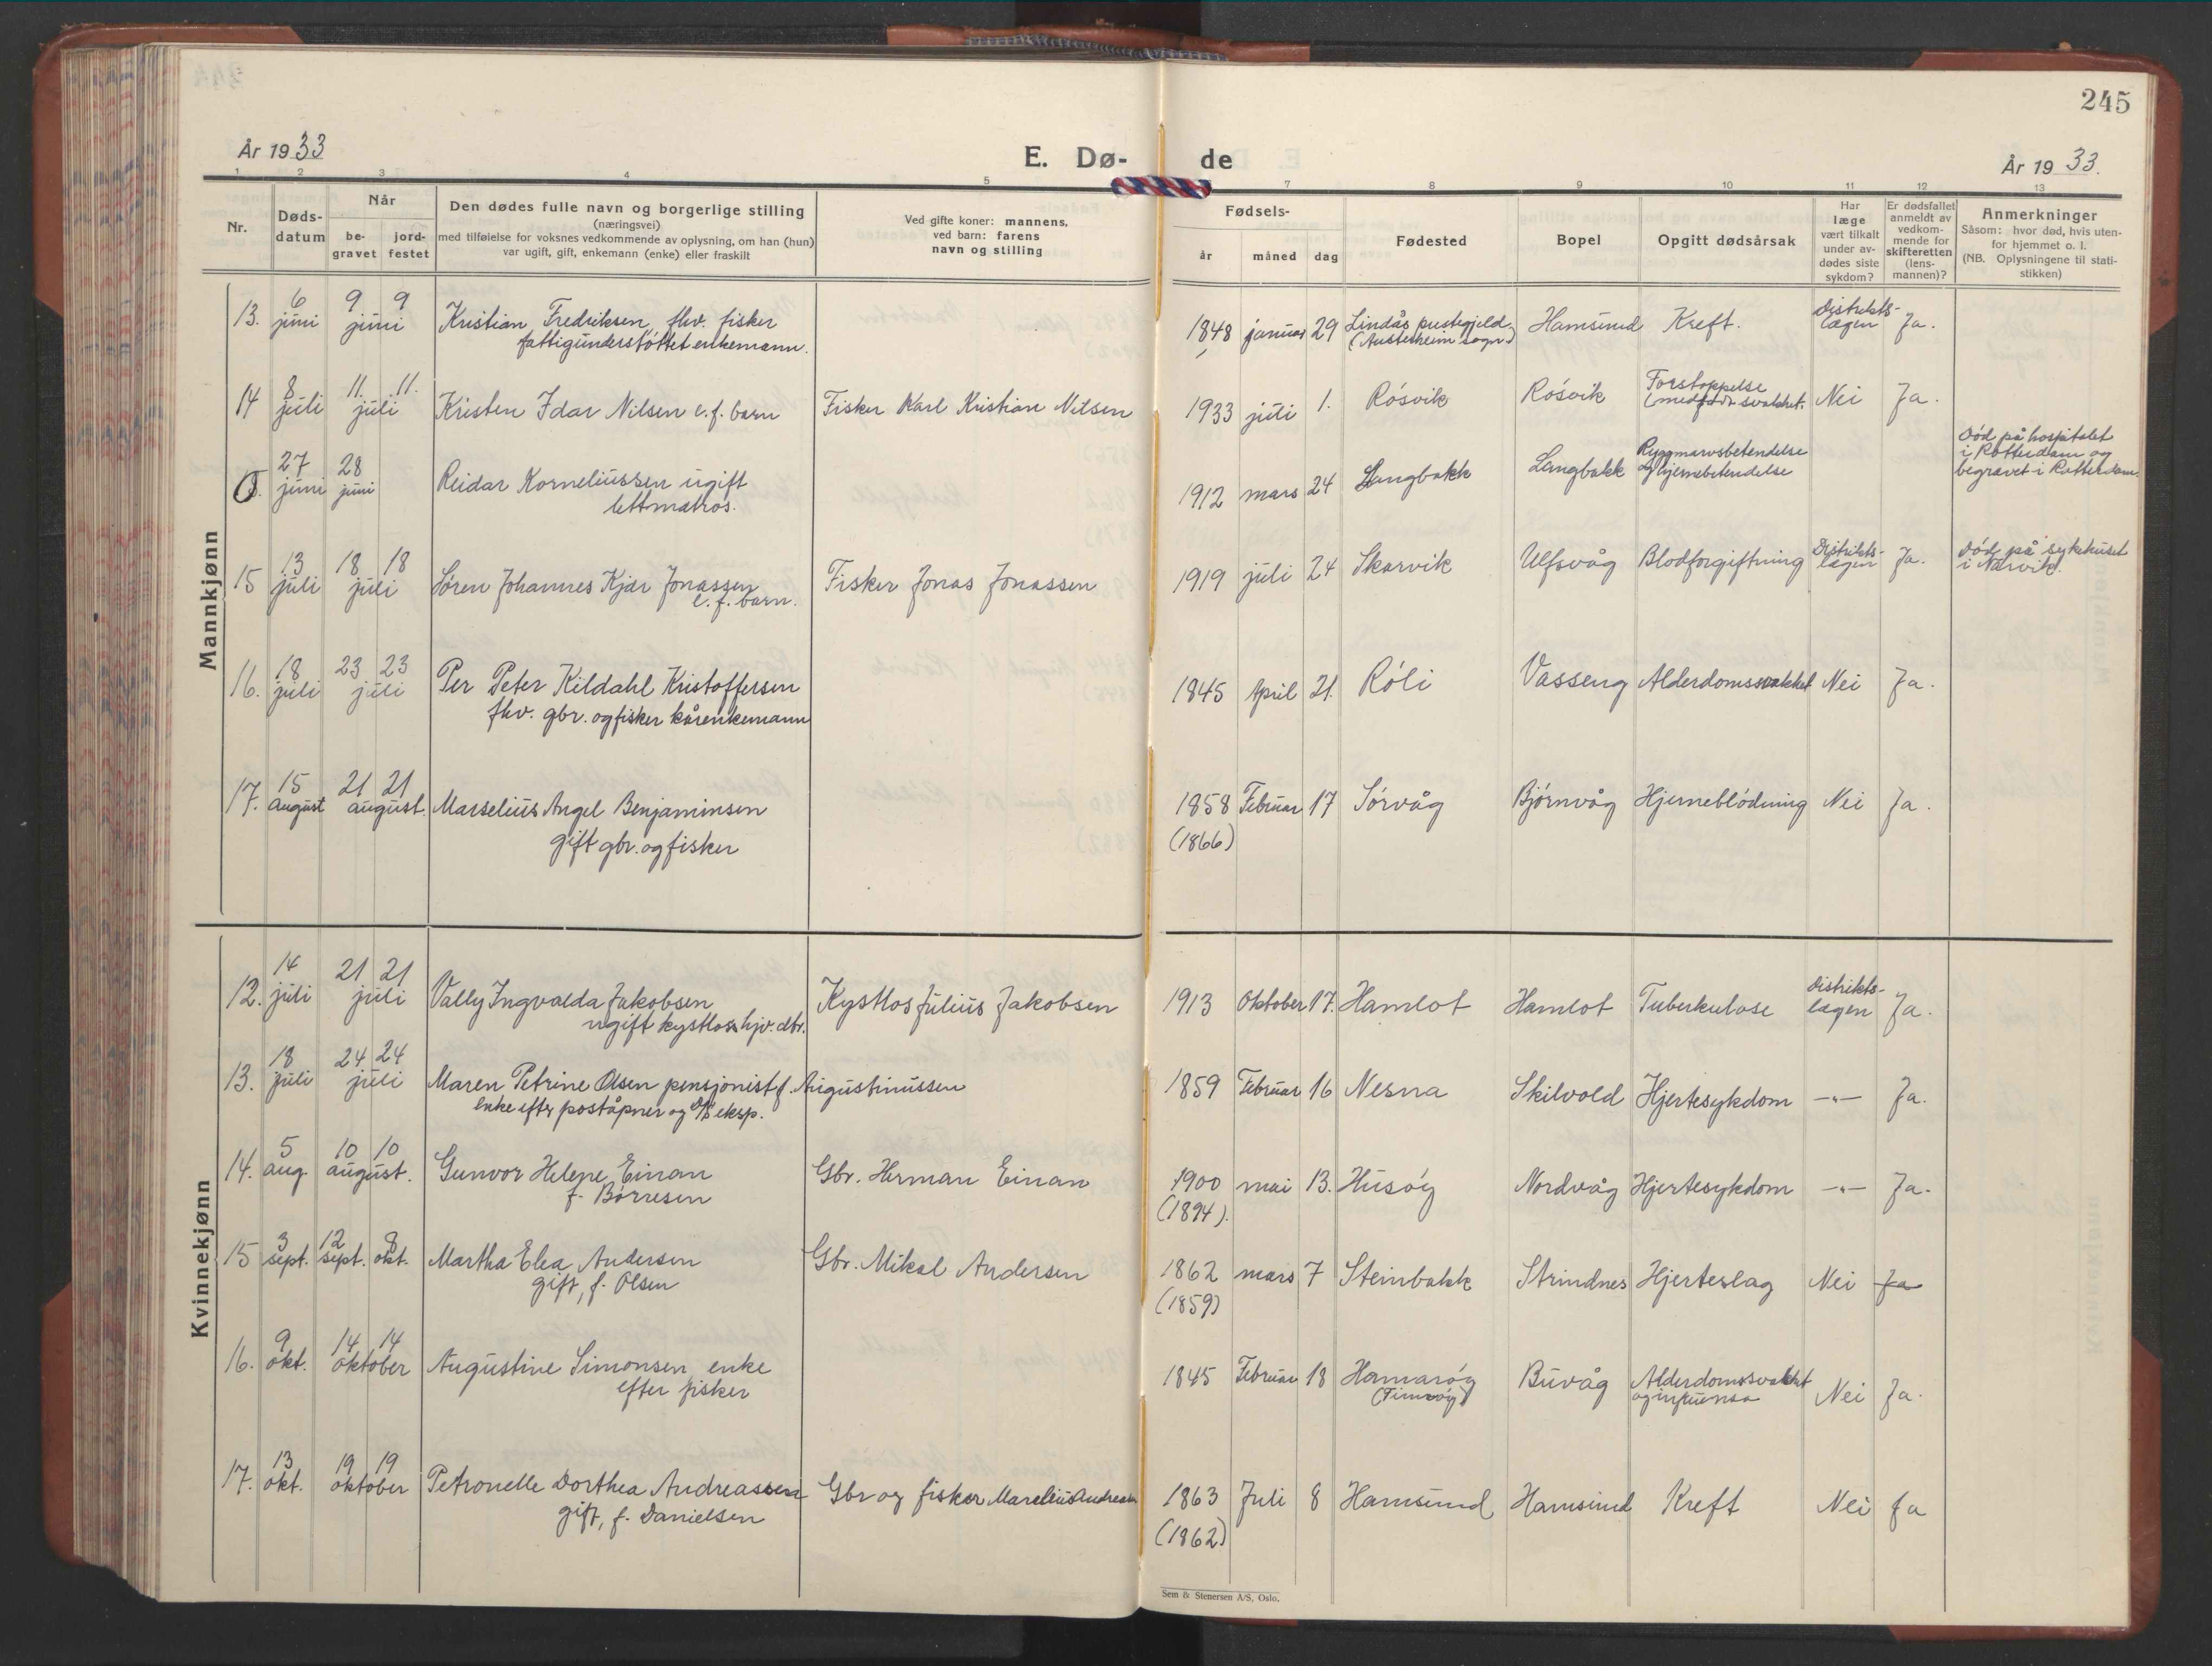 245
År 1933
E. Dø-de
År 1933.
1 2 3 4 5 7 8 9 10 11 12 13
Nr.
Døds-
datum
Når
be-
gravet
jord-
festet
Den dødes fulle navn og borgerlige stilling
(næringsvei)
med tilføielse for voksnes vedkommende av oplysning, om han (hun)
var ugift, gift, enkemann (enke) eller fraskilt
Ved gifte koner: mannens,
ved barn: farens
navn og stilling
Fødsels-
år måned dag
Fødested
Bopel
Opgitt dødsårsak
Har
læge
vært tilkalt
under av-
dødes siste
sykdom?
Er dødsfallet
anmeldt av
vedkom-
mende for
skifteretten
(lens-
mannen)?
Anmerkninger
Såsom: hvor død, hvis uten-
for hjemmet o. l.
(NB. Oplysningene til stati-
stikken)
Mannkjønn
13. 6 juni 9 9 juni Kristian Fredriksen, fhv. fisker
fattigunderstøttet enkemann.
1848 januar 29 Lindås prestegjeld
(Austerheim sogn) Hamsund Kreft. Distrikts-
lægen Ja.
14 8 juli 11. 11. juli Kristen Idar Nilsen e.f. barn Fisker Karl Kristian Nilsen 1933 juli 1. Røsvik Røsvik Forstoppelse
(medfødt svakhet. Nei Ja.
0. 27 juni 28 juni Reidar Korneliussen ugift
lettmatros.
1912 mars 24 Langbakk Langbakk Ryggmarvsbetendelse
og hjernebetendelse
Død på hospitalet
i Rotterdam og
begravet i Rotterdam.
15 13 juli 18 18 juli Søren Johannes Kjær Jonassen
e. f. barn.
Fisker Jonas Jonassen 1919 juli 24 Skarvik Ulfsvåg Blodforgiftning Distrikts-
lægen Ja. Død på sykehuset
i Narvik.
16. 18 juli 23 23 juli Per Peter Kildahl Kristoffersen
fhv. gbr. og fisker kårenkemann
1845 April 21. Røli Vasseng Alderdomssvakhet Nei Ja.
17. 15 august 21 21 august. Marselius Angel Benjaminsen
gift gbr. og fisker
1858 Februar 17 Sørvåg Bjørnvåg Hjerneblødning Nei Ja.
(1866)
Kvinnekjønn
12. 14 juli 21 21 juli Vally Ingvalda Jakobsen
ugift kystlos hjv. dtr.
Kystlos Julius Jakobsen 1913 Oktober 17. Hamlot Hamlot Tuberkulose distrikts-
lægen Ja.
13. 18 juli 24 24 juli Maren Petrine Olsen pensjonist f. Augustinussen
enke efter poståpner og D/S eksp.
1859 Februar 16 Nesna Skilvold Hjertesykdom —„— Ja.
14. 5 aug. 10 10 august. Gunvor Helene Einan
f. Børresen
Gbr. Herman Einan 1900 mai 13. Husøy Nordvåg Hjertesykdom —„— Ja.
(1894).
15 3 sept. 12 sept. 8 okt. Martha Elea Andersen
gift, f. Olsen
Gbr. Mikal Andersen 1862 mars 7 Steinbakk Strindnes Hjerteslag Nei Ja
(1859)
16. 9 okt. 14 14 oktober Augustine Simonsen, enke
efter fisker
1845 Februar 18 Hamarøy
(Finnøy) Buvåg Alderdomssvakhet
og influensa Nei Ja.
17. 13 okt. 19 19 oktober Petronelle Dorthea Andreassen
gift, f. Danielsen
Gbr og fisker Marelius Andreassen 1863 Juli 8 Hamsund Hamsund Kreft Nei Ja
(1862)
Sem & Stenersen A/S, Oslo.